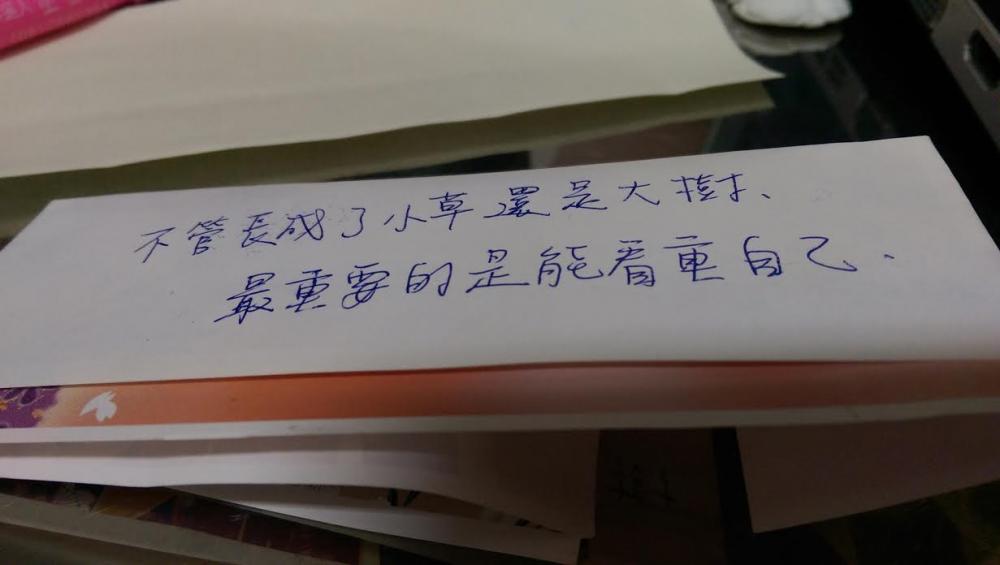 不管長成了小草還是大樹、
最重要的是能看重自己.